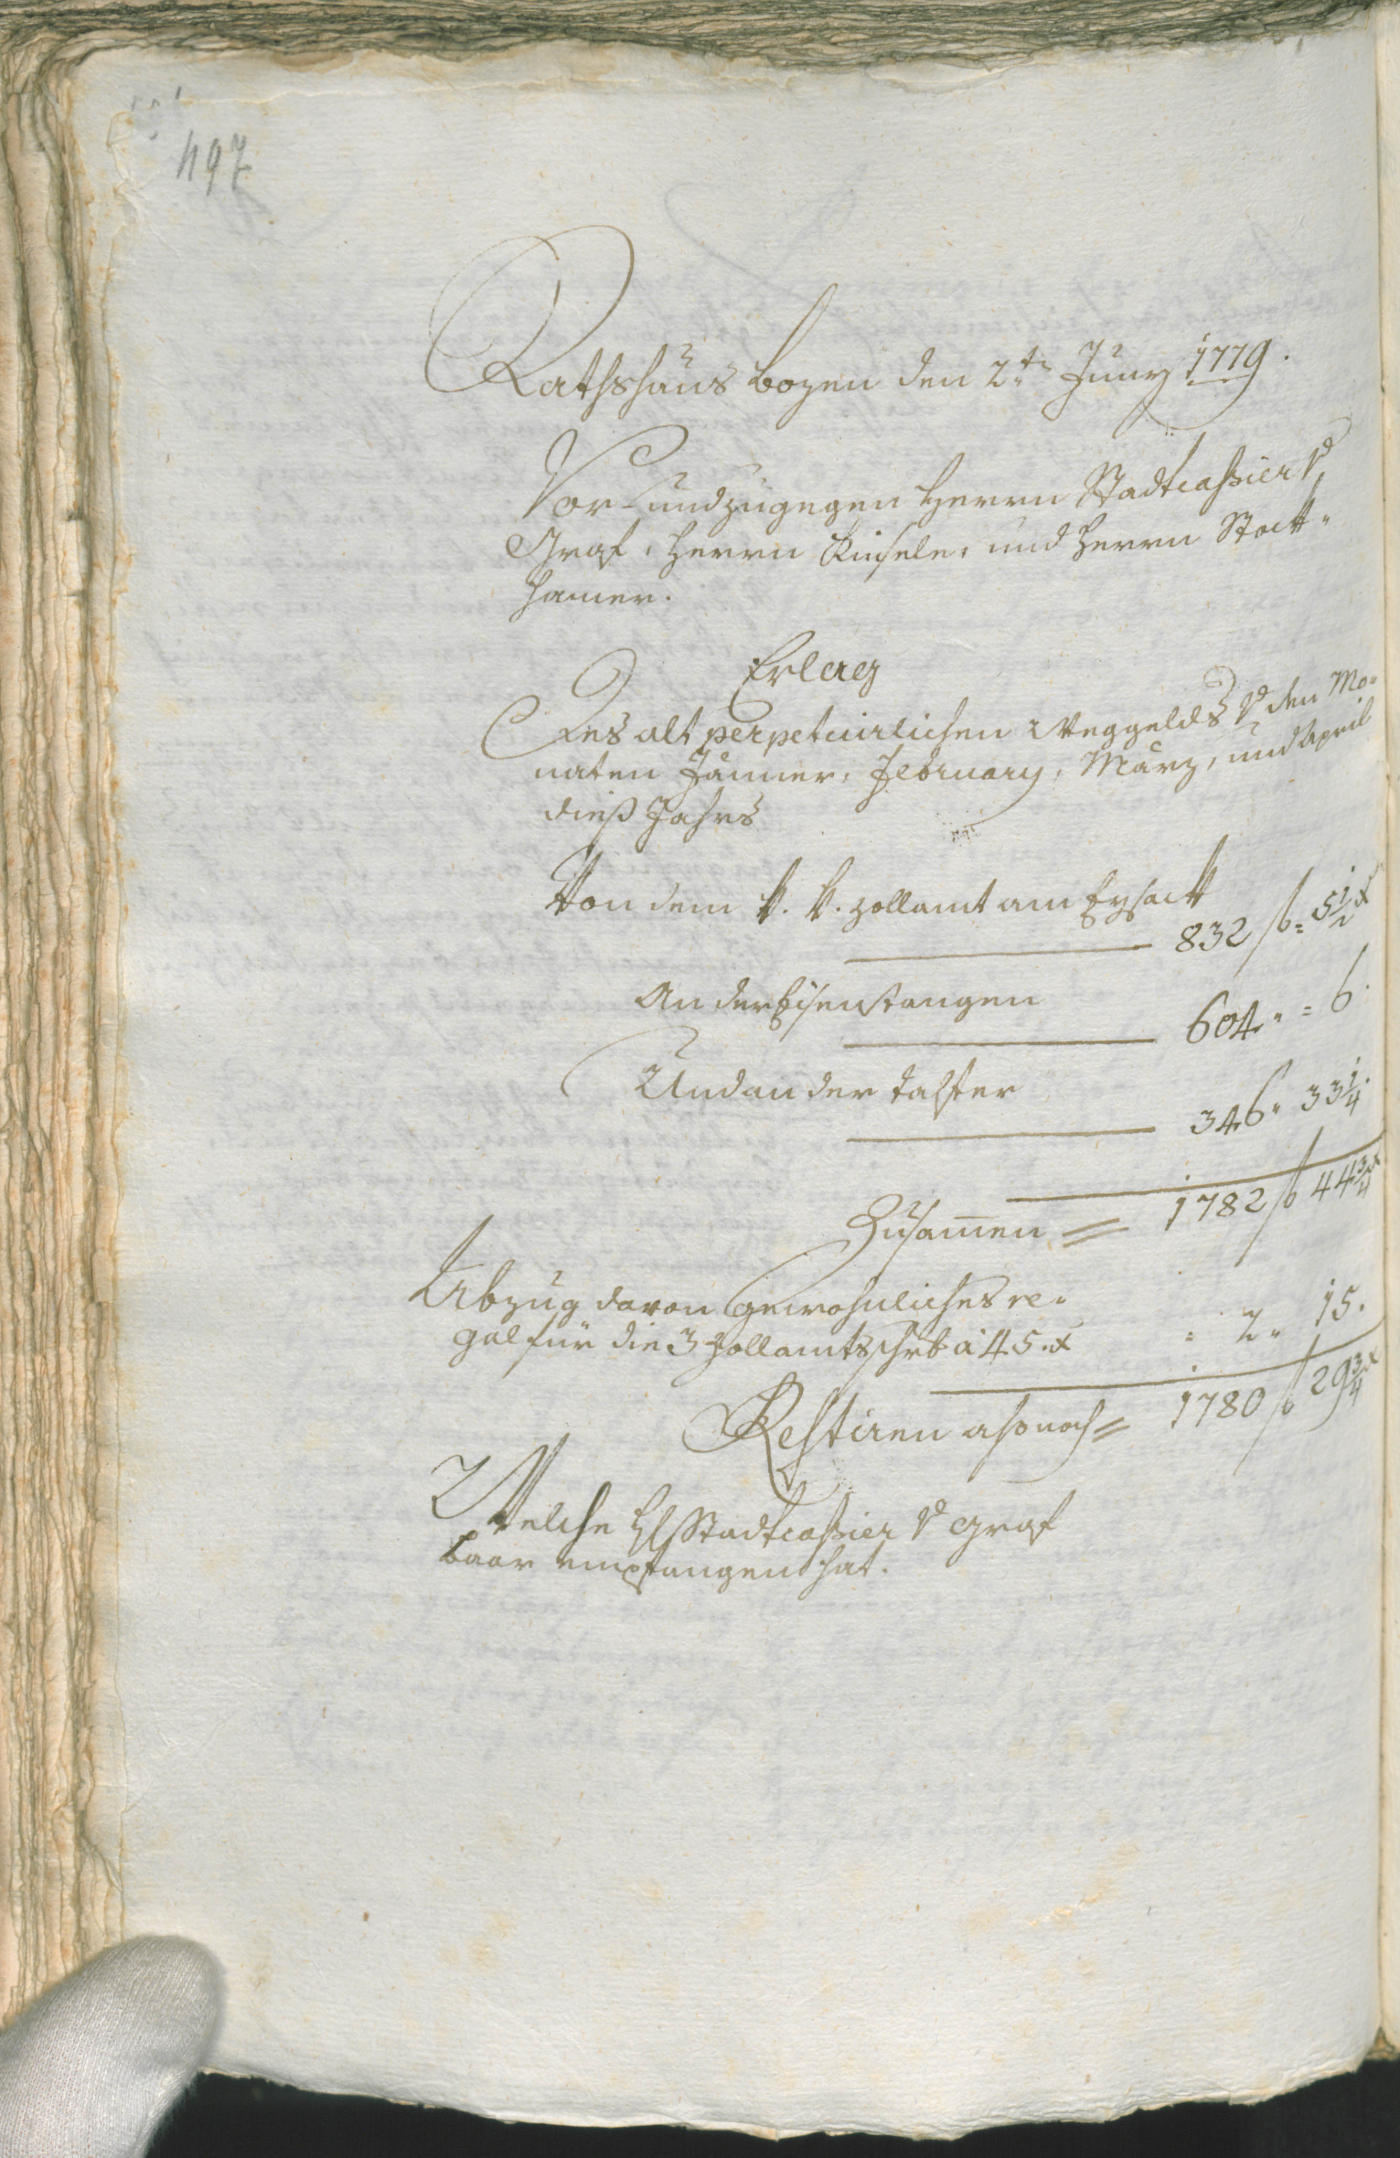 497
Rathshaus Bozen den 2.tn Juny 1779.
Vor- und zugegen Herrn Stadtcassier v
Graf, Herrn Kinsele, und Herrn Stock-
hamer.
Erlag
Des alt perpetuirlichen Weggelds v den Mo-
naten Jänner, February, März, und April
dieß Jahrs
Von dem k. k. Zollamt am Eysack
832 f = 5 1/2 x
An der Eisenstangen
604 " = 6.
Und an der Talfer
346 " 33 1/4.
Zusammen = 1782 f 44 3/4 x
Abzug davon gewohnliches re-
gal für die 3 Zollamtschrb à 45. x = 2 " 15.
Restiren also noch = 1780 f 29 3/4 x
Welche H Stadtcassier v Graf
baar empfangen hat.